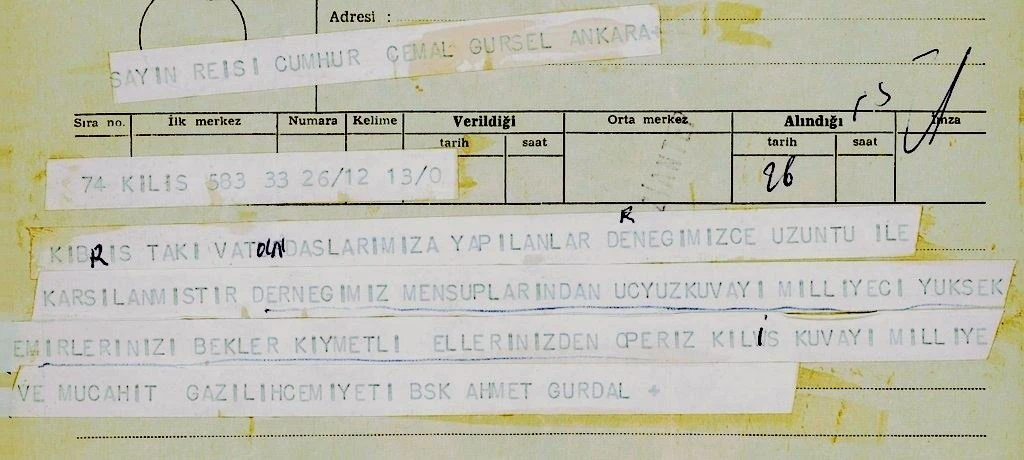 Adresi :
SAYIN REISI CUMHUR CEMAL GURSEL ANKARA+
Sıra no. İlk merkez Numara Kelime Verildiği Orta merkez Alındığı İmza
tarih saat tarih saat
74 KILIS 583 33 26/12 13/0
26
R
KIBRIS TAKI VATANDASLARIMIZA YAPILANLAR DENEGIMIZCE UZUNTU ILE
KARSILANMISTIR DERNEGIMIZ MENSUPLARINDAN UCYUZKUVAYI MILLIYECI YUKSEK
EMIRLERINIZI BEKLER KIYMETLI ELLERINIZDEN OPERIZ KILIS KUVAYI MILLIYE
VE MUCAHIT GAZILIHCEMIYETI BSK AHMET GURDAL +